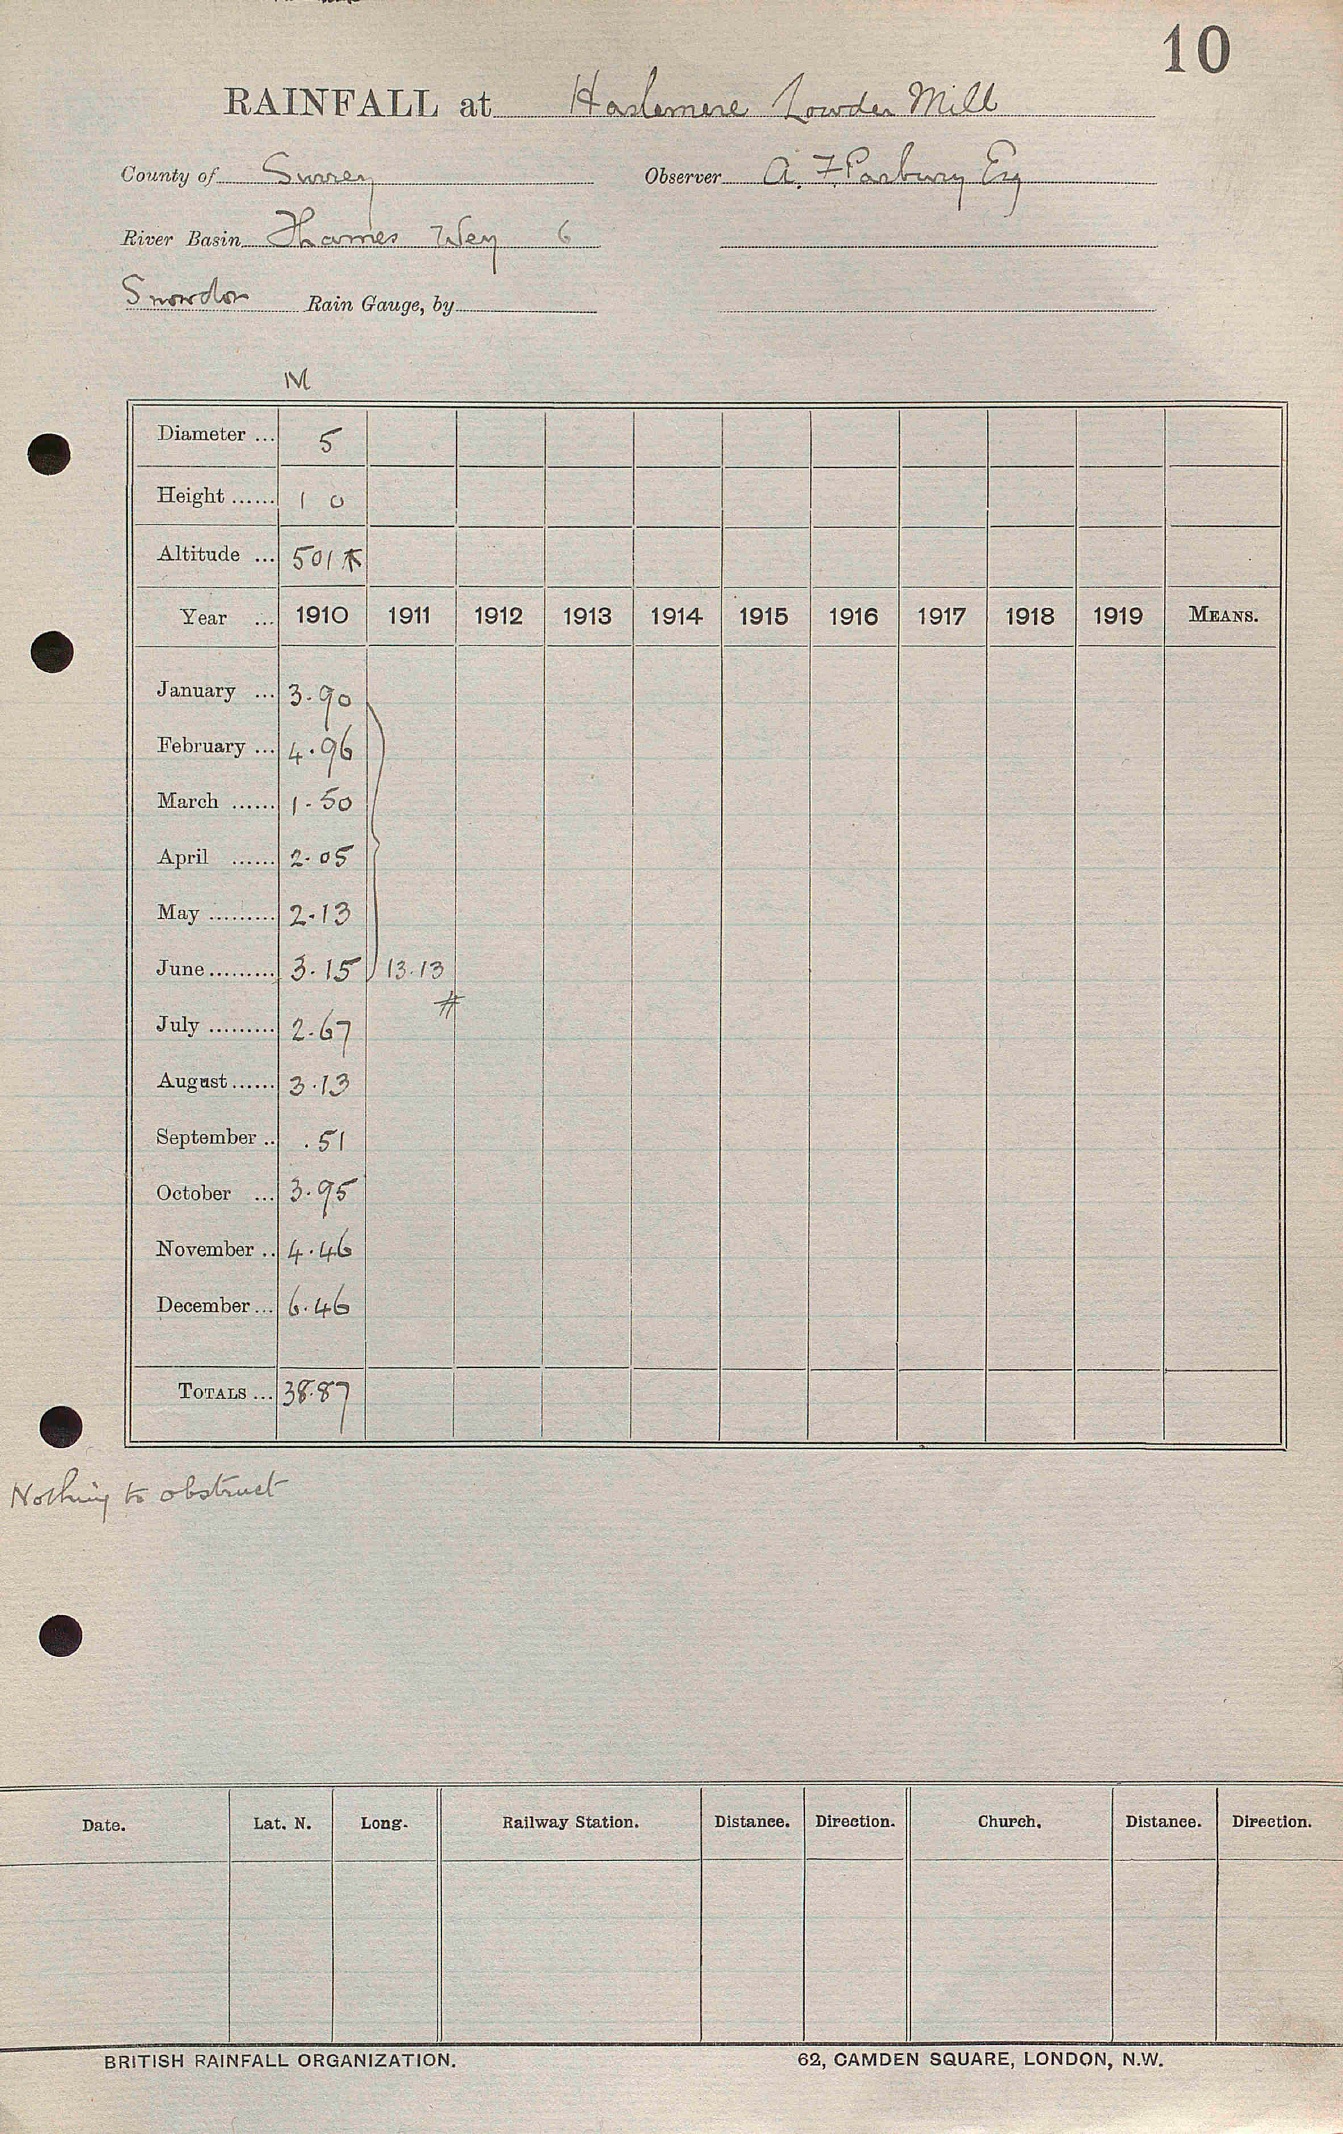 10
RAINFALL at Haslemere Lowder Mill
County of Surrey Observer A. F. Parbury Esq
River Basin Thames Wey 6
Snowdon Rain Gauge, by
M
Diameter ... 5
Height ...... 1 0
Altitude ... 501
Year ... 1910 1911 1912 1913 1914 1915 1916 1917 1918 1919 MEANS.
January ... 3.90
February ... 4.96
March ...... 1.50
April ...... 2.05
May ......... 2.13
June ......... 3.15 13.13
#
July ......... 2.67
August ...... 3.13
September .. .51
October ... 3.95
November .. 4.46
December ... 6.46
TOTALS ... 38.87
Nothing to obstruct
Date. Lat. N. Long. Railway Station. Distance. Direction. Church. Distance. Direction.
BRITISH RAINFALL ORGANIZATION. 62, CAMDEN SQUARE, LONDON, N.W.